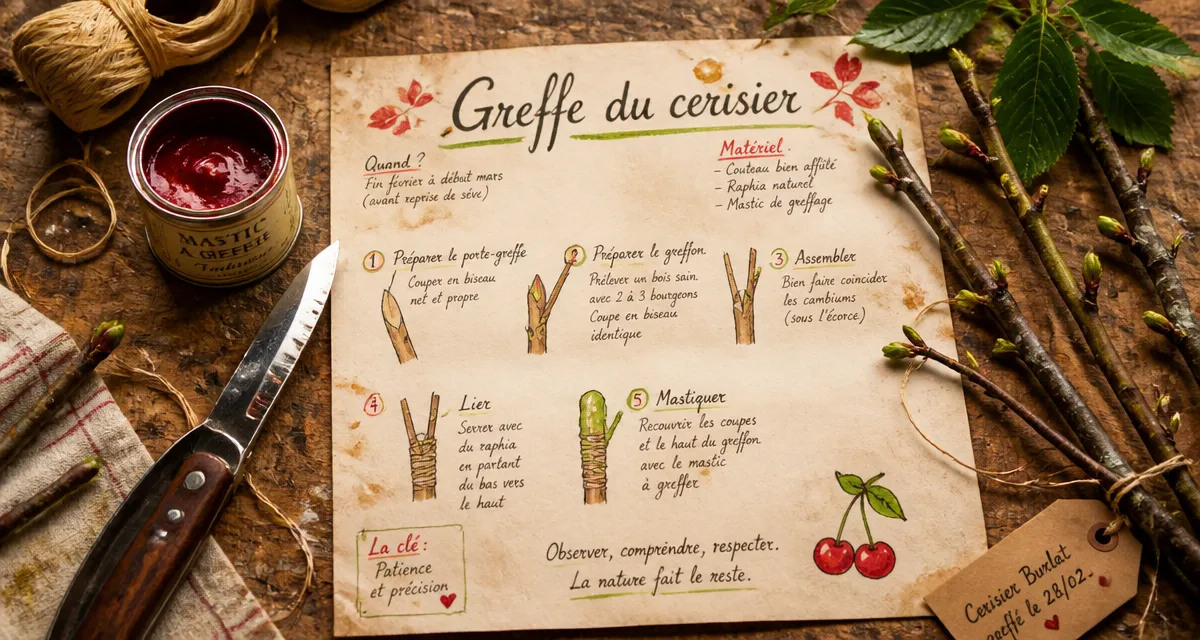 Greffe du cerisier
Quand ?
Fin février à début mars
(avant reprise de sève)
Matériel.
- Couteau bien affûté
- Raphia naturel
- Mastic de greffage
1 Préparer le porte-greffe
Couper en biseau
net et propre
2 Préparer le greffon.
Prélever un bois sain
avec 2 à 3 bourgeons
Coupe en biseau
identique
3 Assembler
Bien faire coincider
les cambiums
(sous l'écorce)
4 Lier
Serrer avec
du raphia
en partant
du bas vers
le haut
5 Mastiquer
Recouvrir les coupes
et le haut du greffon
avec le mastic
à greffer
La clé :
Patience
et précision
Observer, comprendre, respecter.
La nature fait le reste.
MASTIC
À GREFFE
Cerisier Burlat
greffé le 28/02.-